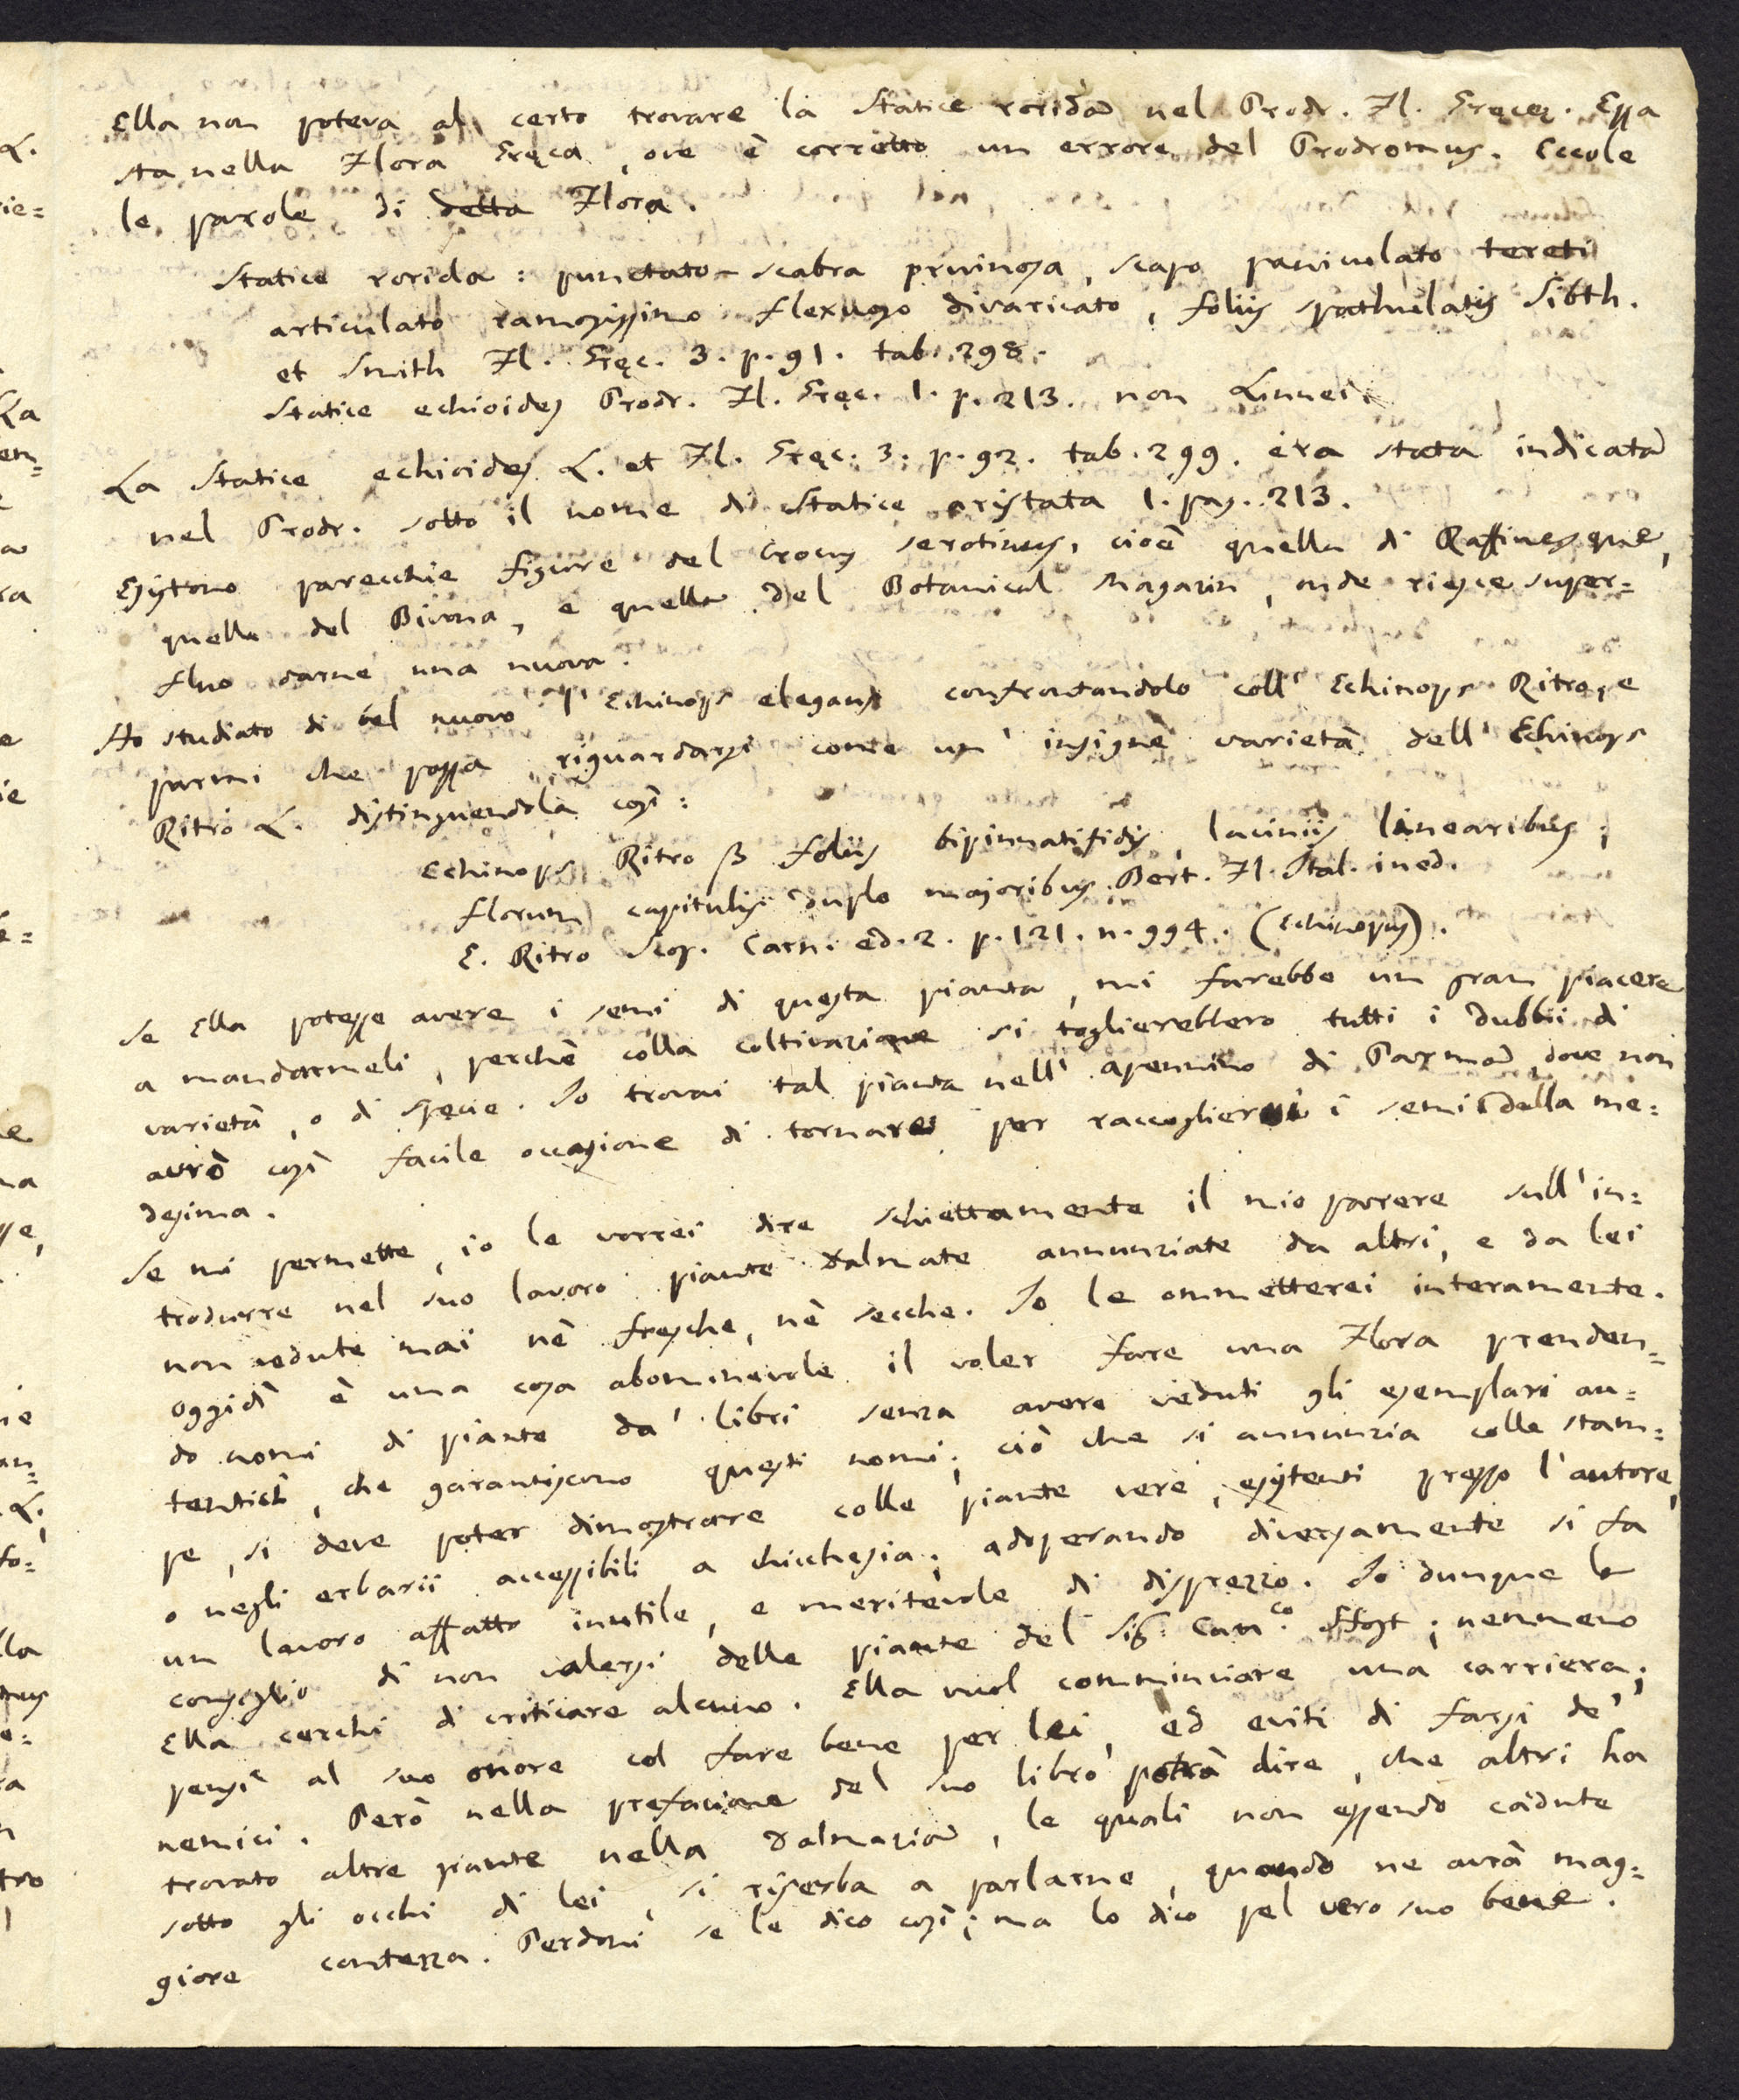 Ella non poteva al certo trovare la Statice rorida nel Prodr. Fl. Græcæ. Essa
sta nella Flora Græca, ove è corretto un errore del Prodromus. Eccole
le parole di detta Flora.
Statice rorida: punctato-scabra pruinosa, scapo paniculato tereti
articulato ramosissimo flexuoso divaricato, foliis spathulatis Sibth.
et Smith Fl. Græc. 3. p. 91. tab. 298.
Statice echioides Prodr. Fl. Græc. 1. p. 213. non Linnei.
La Statice echioides L. et Fl. Græc. 3. p. 92. tab. 299. era stata indicata
nel Prodr. sotto il nome di Statice aristata 1. pag. 213.
Esistono parecchie figure del Crocus serotinus, cioè quella di Raffinesque,
quella del Bivona, e quella del Botanical Magazin, onde riesce super=
fluo darne una nuova.
Ho studiato di bel nuovo l'Echinops elegans confrontandolo coll'Echinops Ritro, e
parmi che possa riguardarsi come un'insigne varietà dell'Echinops
Ritro L. distinguendola così:
Echinops Ritro β foliis bipinnatifidis, laciniis linearibus,
florum capitulis duplo majoribus. Bert. Fl. Ital. ined.
E. Ritro Scop. Carn. ed. 2. p. 121. n. 994. (Echinopus).
Se Ella potesse avere i semi di questa pianta, mi farebbe un gran piacere
a mandarmeli, perchè colla coltivazione si toglierebbero tutti i dubbii di
varietà, o di specie. Io trovai tal pianta nell'apennino di Parma, dove non
avrò così facile occasione di tornare per raccogliere i semi della me=
desima.
Se mi permette, io le vorrei dire schiettamente il mio parere sull'in=
trodurre nel suo lavoro piante dalmate annunziate da altri, e da lei
non vedute mai nè fresche, nè secche. Io le ommetterei interamente.
Oggidì è una cosa abominevole il voler fare una Flora prenden=
do nomi di piante da' libri senza avere veduti gli esemplari au=
tentici, che garantiscono questi nomi; ciò che si annunzia colle stam=
pe, si deve poter dimostrare colle piante vere, esistenti presso l'autore,
o negli erbarii accessibili a chicchesia; adoperando diversamente si fa
un lavoro affatto inutile, e meritevole di disprezzo. Io dunque la
consiglio di non valersi delle piante del Sig. Can.co Host; nemmeno
Ella cerchi di criticare alcuno. Ella vuol comminciare una carriera;
pensi al suo onore col fare bene per lei, ed eviti di farsi de'
nemici. Però nella prefazione del suo libro potrà dire, che altri ha
trovato altre piante nella Dalmazia, le quali non essendo cadute
sotto gli occhi di lei, si riserba a parlarne, quando ne avrà mag=
giore contezza. Perdoni se le dico così; ma lo dico pel vero suo bene.